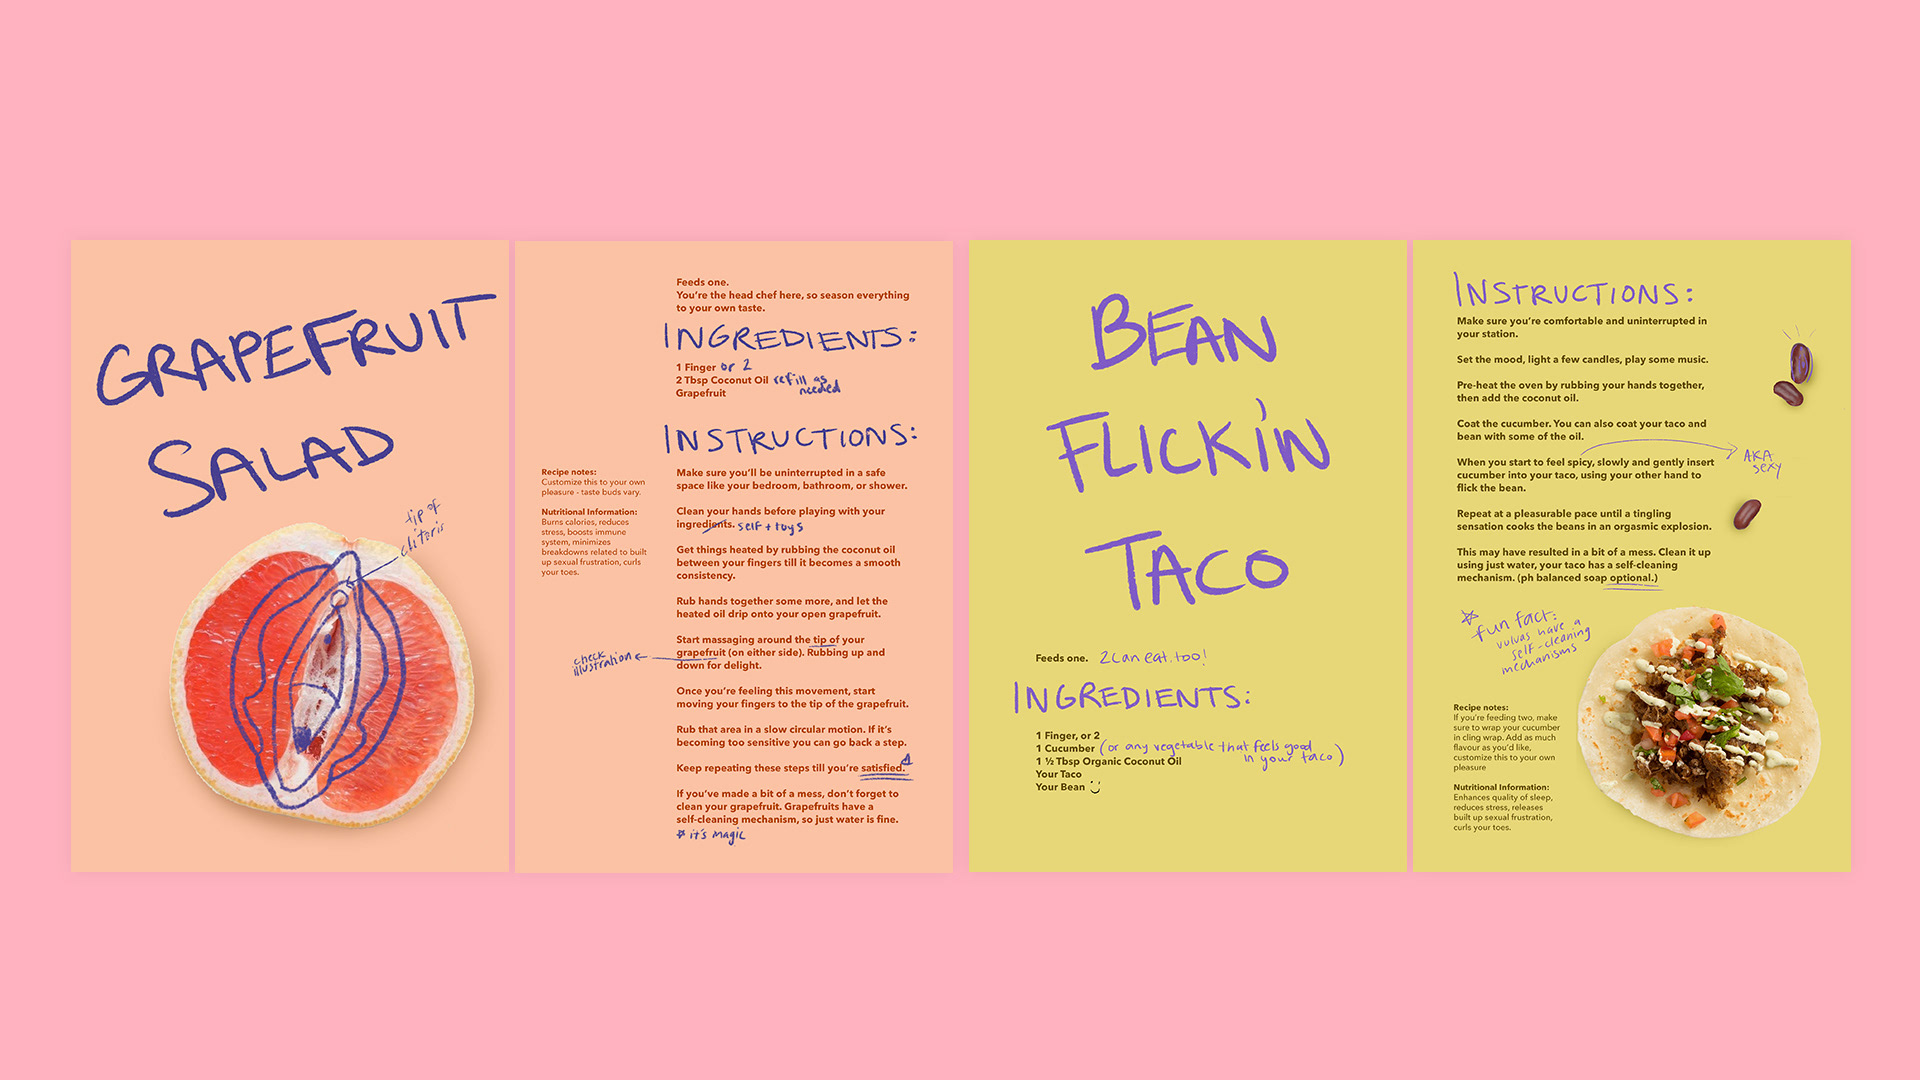 GRAPEFRUIT
SALAD
tip of
clitoris
Feeds one.
You're the head chef here, so season everything
to your own taste.
INGREDIENTS:
1 Finger or 2
2 Tbsp Coconut Oil refill as
needed
Grapefruit
INSTRUCTIONS:
Recipe notes:
Customize this to your own
pleasure - taste buds vary.
Nutritional Information:
Burns calories, reduces
stress, boosts immune
system, minimizes
breakdowns related to built
up sexual frustration, curls
your toes.
Make sure you'll be uninterrupted in a safe
space like your bedroom, bathroom, or shower.
Clean your hands before playing with your
ingredients. self + toys
Get things heated by rubbing the coconut oil
between your fingers till it becomes a smooth
consistency.
Rub hands together some more, and let the
heated oil drip onto your open grapefruit.
Start massaging around the tip of your
grapefruit (on either side). Rubbing up and
down for delight.
check
illustration
Once you're feeling this movement, start
moving your fingers to the tip of the grapefruit.
Rub that area in a slow circular motion. If it's
becoming too sensitive you can go back a step.
Keep repeating these steps till you're satisfied.
If you've made a bit of a mess, don't forget to
clean your grapefruit. Grapefruits have a
self-cleaning mechanism, so just water is fine.
it's magic
BEAN
FLICKIN
TACO
Feeds one. 2 can eat too!
INGREDIENTS:
1 Finger, or 2
1 Cucumber (or any vegetable that feels good
in your taco)
1 ½ Tbsp Organic Coconut Oil
Your Taco
Your Bean
INSTRUCTIONS:
Make sure you're comfortable and uninterrupted in
your station.
Set the mood, light a few candles, play some music.
Pre-heat the oven by rubbing your hands together,
then add the coconut oil.
Coat the cucumber. You can also coat your taco and
bean with some of the oil.
AKA
sexy
When you start to feel spicy, slowly and gently insert
cucumber into your taco, using your other hand to
flick the bean.
Repeat at a pleasurable pace until a tingling
sensation cooks the beans in an orgasmic explosion.
This may have resulted in a bit of a mess. Clean it up
using just water, your taco has a self-cleaning
mechanism. (ph balanced soap optional.)
fun fact:
vulvas have a
self-cleaning
mechanisms
Recipe notes:
If you're feeding two, make
sure to wrap your cucumber
in cling wrap. Add as much
flavour as you'd like,
customize this to your own
pleasure
Nutritional Information:
Enhances quality of sleep,
reduces stress, releases
built up sexual frustration,
curls your toes.